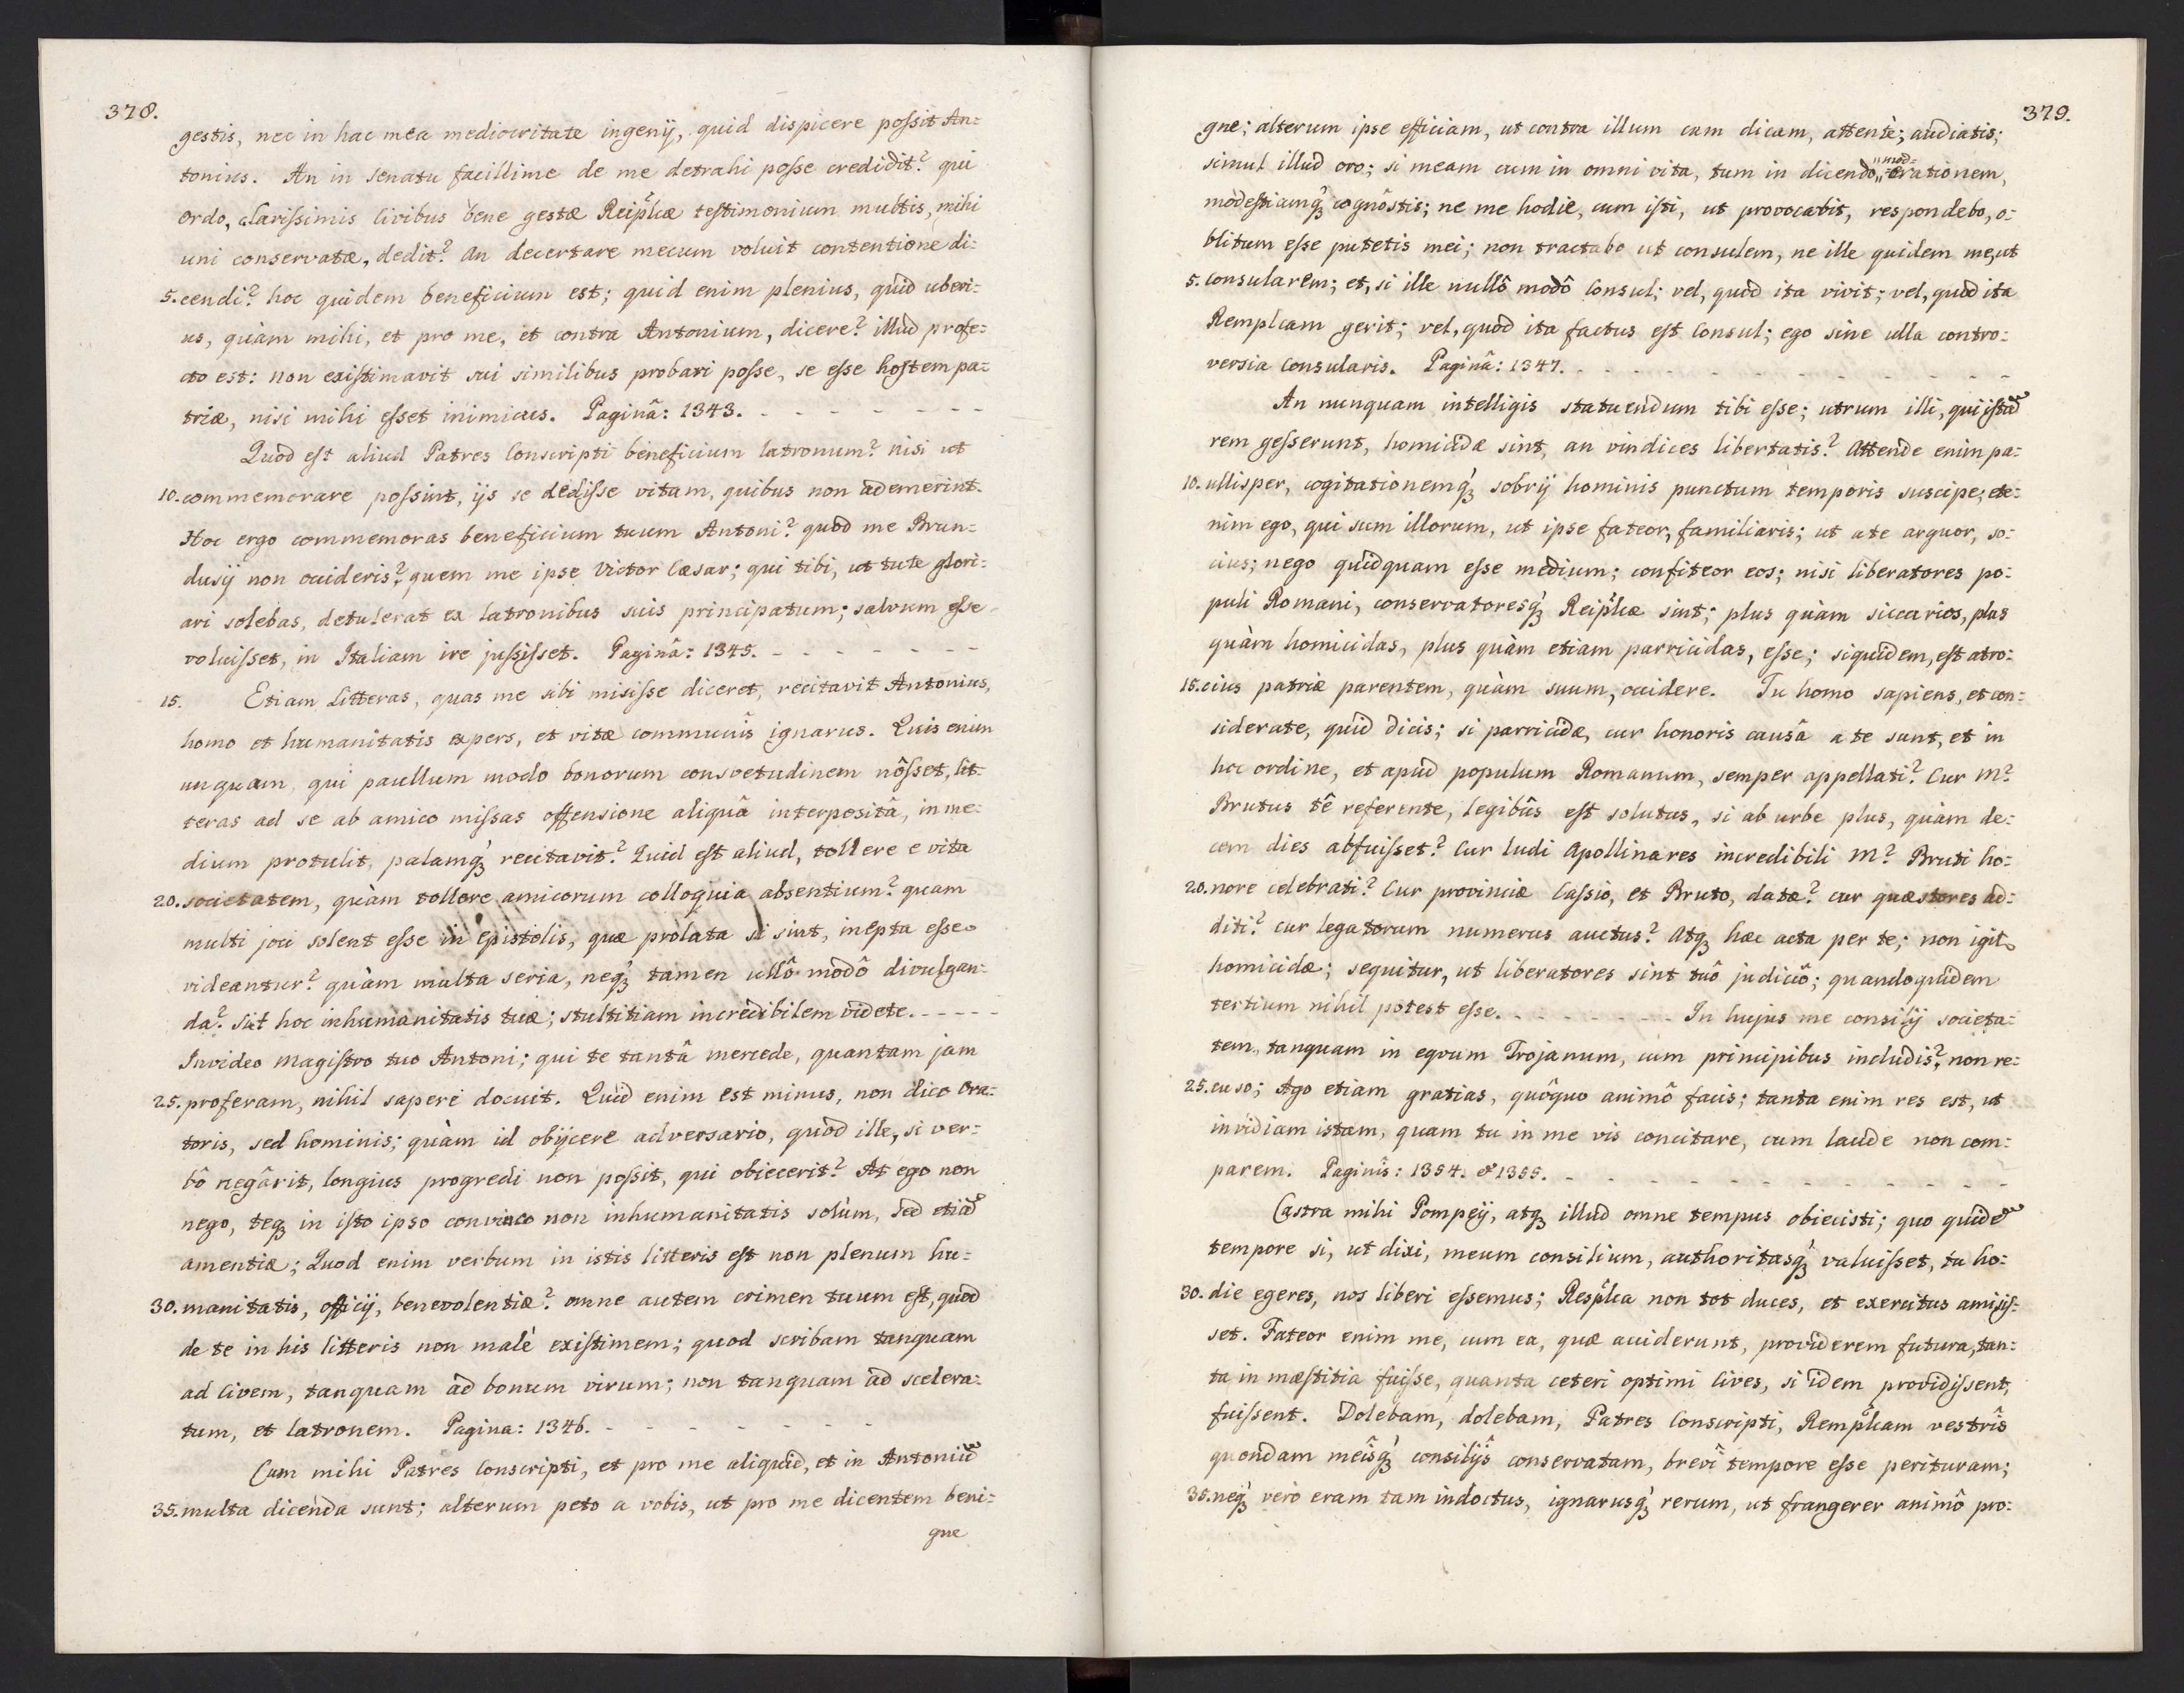 378.
gestis, nec in hac mea mediocritate ingenij, quid dispicere poſsit An=
tonius. An in senatu facillime de me detrahi poſse credidit? qui
ordo, clariſsimis Civibus bene gestæ Reip̃licæ teſtimonium multis, mihi
uni conservatæ, dedit? An decertare mecum voluit contentione di=
5. cendi? hoc quidem beneficium est; quid enim plenius, quid uberi=
us, quàm mihi, et pro me, et contra Antonium, dicere? illud profe=
cto est: non exiſtimavit sui similibus probari poſse, se eſse hoſtem pa=
triæ, nisi mihi eſset inimicus. Paginâ: 1343. - - - - - - - -
Quod eſt aliud Patres Conscripti beneficium latronum? nisi ut
10. commemorare poſsint, ijs se dediſse vitam, quibus non ademerint.
Hoc ergo commemoras beneficium tuum Antoni? quod me Brun=
dusij non occideris? quem me ipse Victor Cæsar; qui tibi, ut tute glori=
ari solebas, detulerat ex latronibus suis principatum; salvum eſse
voluiſset, in Italiam ire juſsiſset. Paginâ: 1345. - - - - - - -
15. Etiam Litteras, quas me sibi misiſse diceret, recitavit Antonius,
homo et humanitatis expers, et vitæ communis ignarus. Quis enim
unquam, qui paullum modo bonorum consvetudinem nôſset, lit=
teras ad se ab amico miſsas offensione aliquâ interpositâ, in me=
dium protulit, palamq́ȝ recitavit? Quid eſt aliud, tollere e vita
20. societatem, quàm tollere amicorum colloquia absentium? quam
multi joci solent eſse in epistolis, quæ prolata si sint, inepta eſse
videantur? quàm multa seria, neq́ȝ tamen ullô modô divulgan=
da? Sit hoc inhumanitatis tuæ; stultitiam incredibilem videte. - - - - -
Invideo Magiſtro tuo Antoni; qui te tantâ mercede, quantam jam
25. proferam, nihil sapere docuit. Quid enim est minus, non dico Ora=
toris, sed hominis; quàm id obijcere adversario, quòd ille, si ver=
bô negârit, longius progredi non poſsit, qui obiecerit? At ego non
nego, teqȝ in iſto ipso convinco non inhumanitatis solùm, sed etiam̃
amentiæ; Quod enim verbum in istis litteris eſt non plenum hu=
30. manitatis, officij, benevolentiæ? omne autem crimen tuum eſt, quòd
de te in his litteris non malè exiſtimem; quod scribam tanquam
ad Civem, tanquam ad bonum virum; non tanquam ad scelera=
tum, et latronem. Pagina: 1346. - - - - - - -
Cum mihi Patres Conscripti, et pro me aliquid, et in Antonium̃
35. multa dicenda sunt; alterum peto a vobis, ut pro me dicentem beni=
gne
379.
gne; alterum ipse efficiam, ut contra illum cum dicam, attentè; audiatis;
simul illud oro; si meam cum in omni vita, tum in dicendo „mod=„erationem,
modeſtiamq́ȝ cognôstis; ne me hodie, cum iſti, ut provocavit, respondebo, o=
blitum eſse putetis mei; non tractabo ut consulem, ne ille quidem me, ut
5. consularem; et, si ille nullô modô Consul; vel, quòd ita vivit; vel, quòd ita
Remplcam gerit; vel, quòd ita factus eſt Consul; ego sine ulla contro=
versia Consularis. Paginâ: 1347. - - - - - - - - - - - -
An nunquam intelligis statuendum tibi eſse; utrum illi, qui iſtam̃
rem geſserunt, homicidæ sint, an vindices libertatis? Attende enim pa=
10. ullisper, cogitationemq́ȝ sobrij hominis punctum temporis suscipe; ete=
nim ego, qui sum illorum, ut ipse fateor, familiaris; ut a te arguor, so=
cius; nego quidquam eſse medium; confiteor eos; nisi liberatores po=
puli Romani, conservatoresq́ȝ Reip̃licæ sint; plus quàm siccarios, plus
quàm homicidas, plus quàm etiam parricidas, eſse; siquidem, eſt atro=
15. cius patriæ parentem, quàm suum, occidere. Tu homo sapiens, et con=
siderate, quid dicis; si parricidæ, cur honoris causâ a te sunt, et in
hoc ordine, et apud populum Romanum, semper appellati? Cur M?
Brutus tê referente, legibûs eſt solutus, si ab urbe plus, quàm de=
cem dies abfuiſset? Cur ludi Apollinares incredibili M? Bruti ho=
20. nore celebrati? Cur provinciæ Caſsio, et Bruto, datæ? cur quæstores ad=
diti? cur legatorum numerus auctus? Atqȝ hæc acta per te; non igit̃
homicidæ; sequitur, ut liberatores sint tuô judiciô; quandoquidem
tertium nihil potest eſse. - - - - - - - - In hujus me consilij societa=
tem, tanquam in eqvum Trojanum, cum principibus includis? non re=
25. cuso; Ago etiam gratias, quôquo animô facis; tanta enim res est, ut
invidiam istam, quam tu in me vis concitare, cum laude non com=
parem. Paginîs: 1354. & 1355. - - - - - - - - - - - -
Castra mihi Pompeij, atqȝ illud omne tempus obiecisti; quo quidem̃
tempore si, ut dixi, meum consilium, authoritasq́ȝ valuiſset, tu ho=
30. die egeres, nos liberi eſsemus; Resp̃lca non tot duces, et exercitus amisiſ=
set. Fateor enim me, cum ea, quæ acciderunt, providerem futura, tan=
ta in mæſtitia fuiſse, quanta ceteri optimi Cives, si idem providiſsent,
fuiſsent. Dolebam, dolebam, Patres Conscripti, Remp̃lcam vestrîs
quondam meîsq́ȝ consilijs conservatam, brevî tempore eſse perituram;
35. neq́ȝ verò eram tam indoctus, ignarusq́ȝ rerum, ut frangerer animô pro=